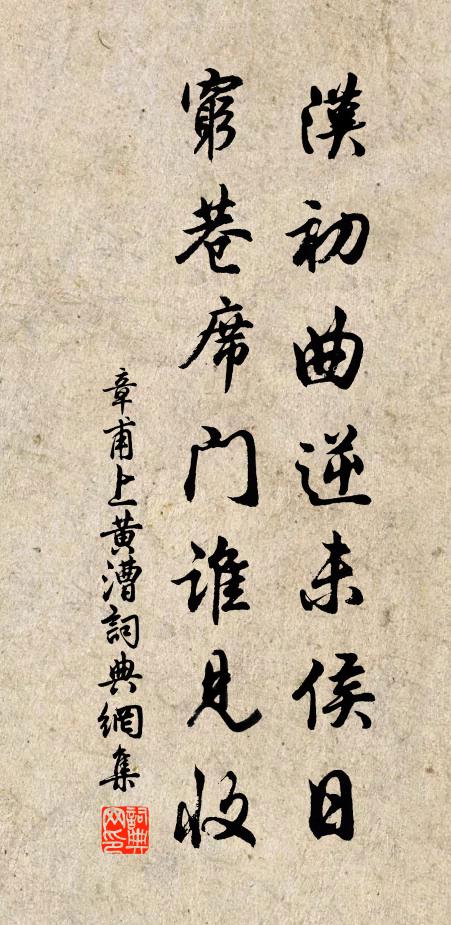 漢初曲逆未侯日
窮巷席门誰見收
章甫上黄漕詞典網集
詞典網印